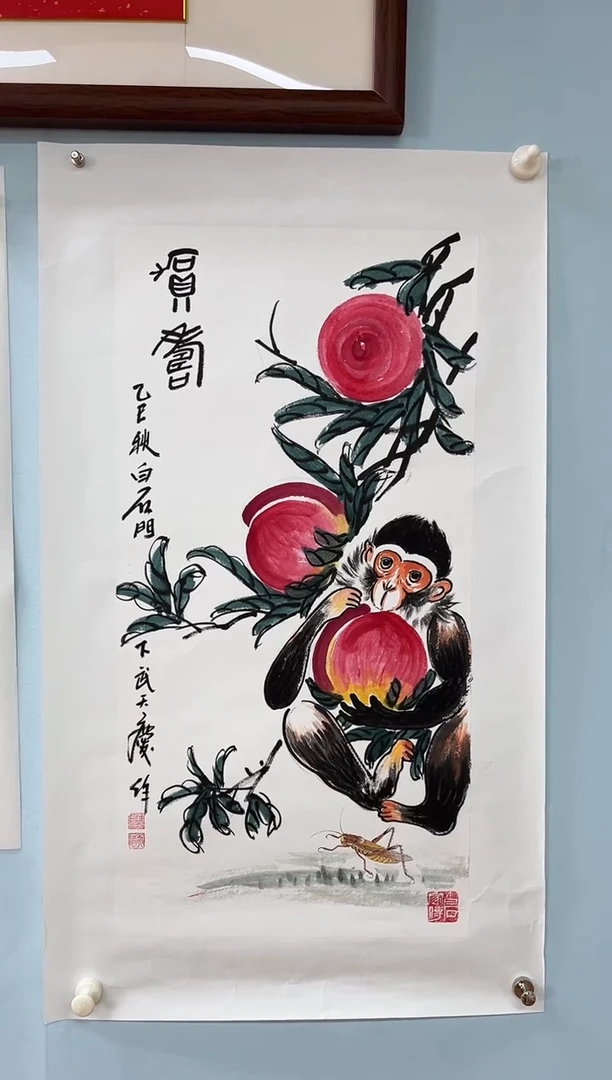 壽
乙巳秋白石門下武天慶作